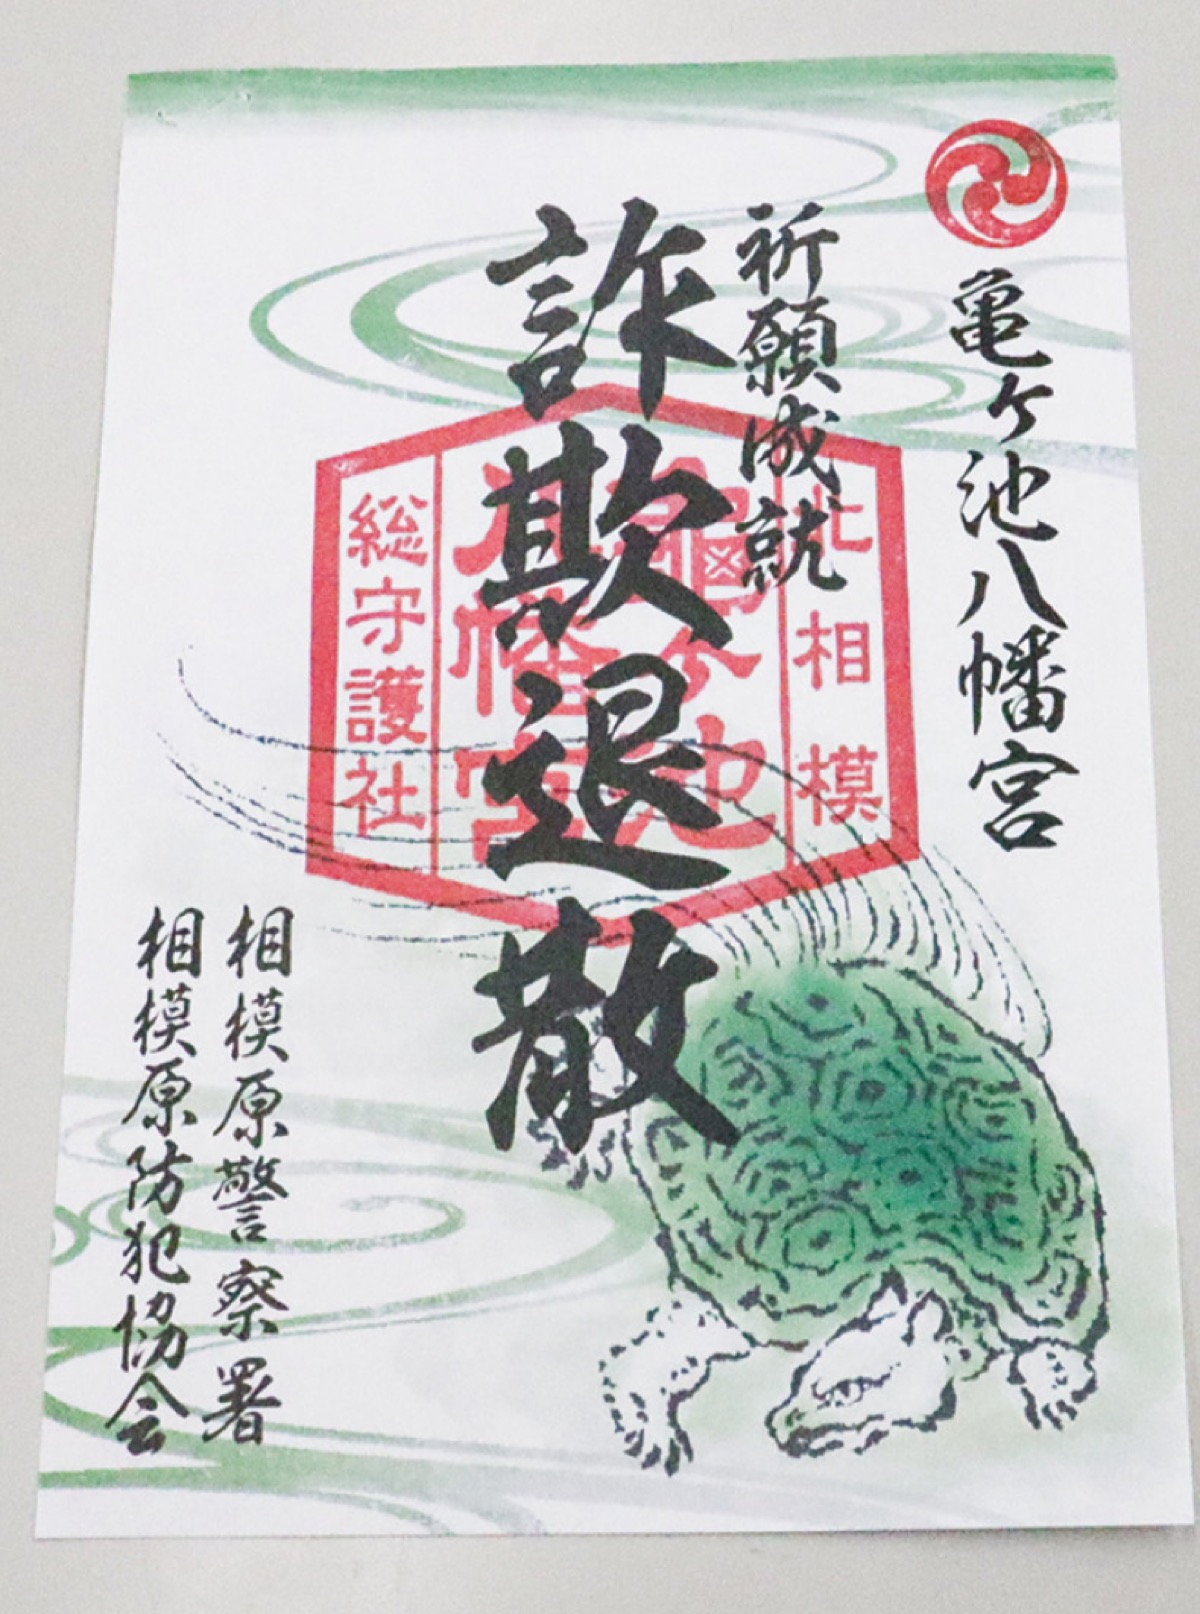 亀ヶ池八幡宮
祈願成就
詐欺退散
北相模
亀ヶ池
八幡宮
総守護社
相模原警察署
相模原防犯協会